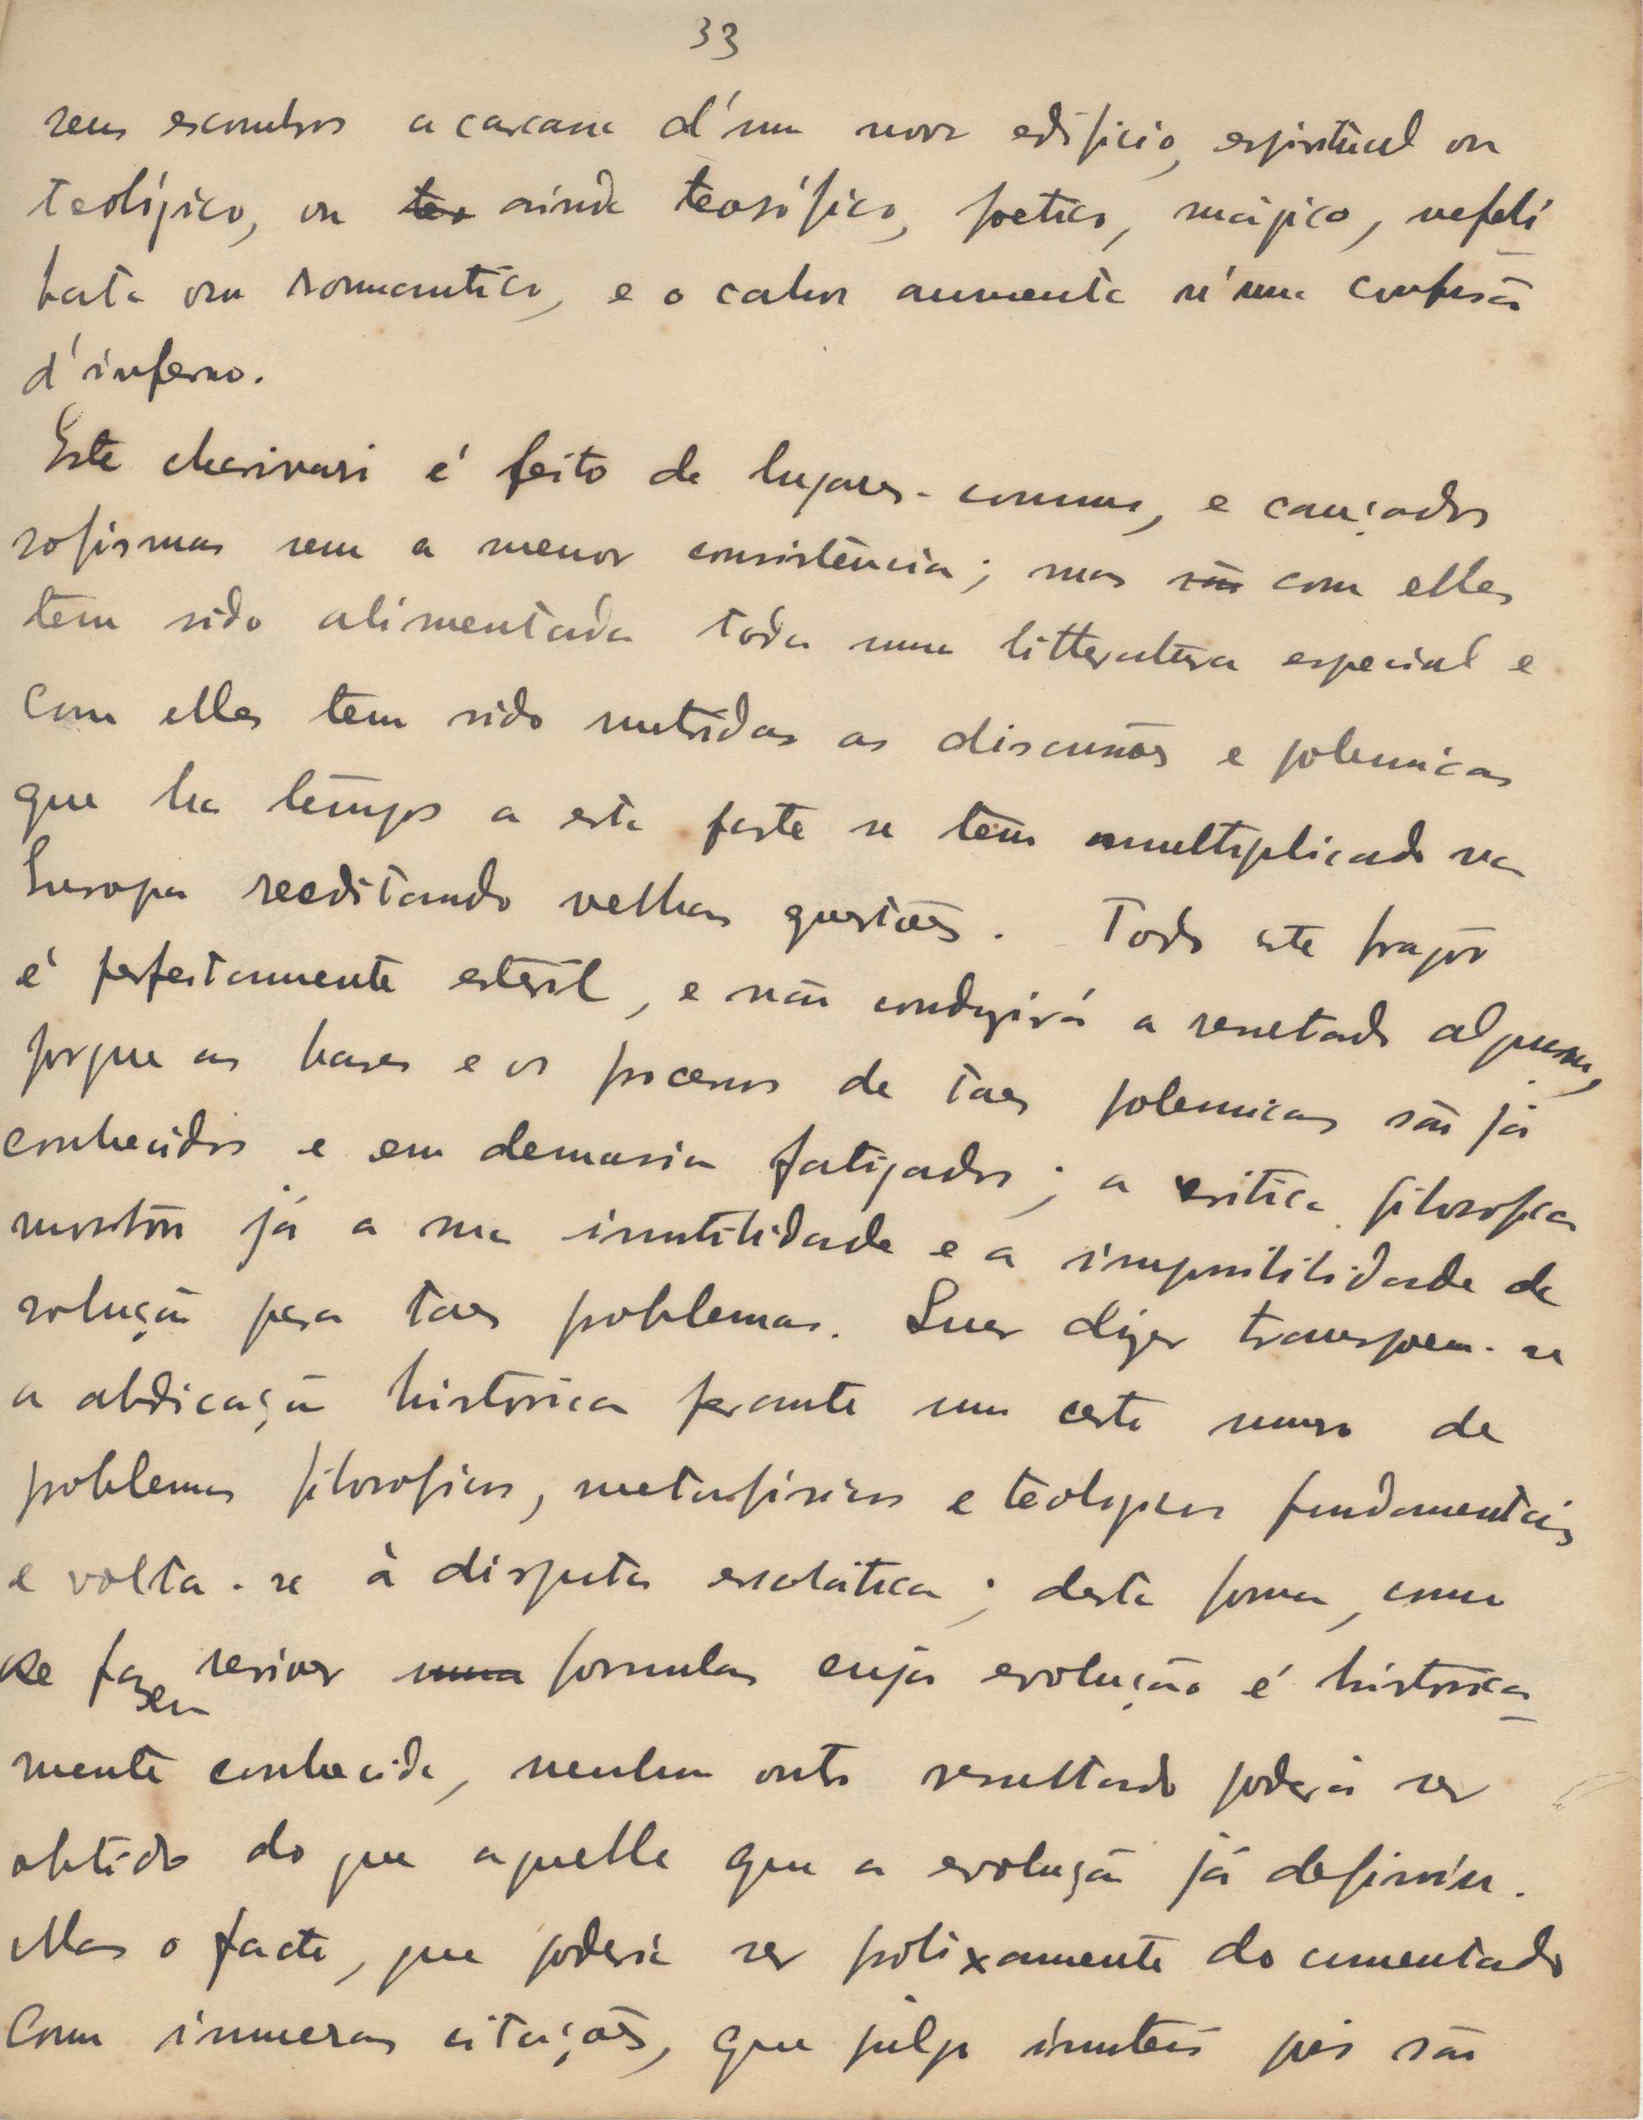 33
seus escombros a carcassa d'um novo edificio, espiritual ou
teológico, ou teo ainda teosófico, poetico, mágico, nefeli
bata ou romantico, e o calor aumenta n'uma confusão
d'inferno.
Este charivari é feito de lugares-communs, e cançados
sofismas sem a menor consistência; mas são com elles
tem sido alimentada toda uma litteratura especial e
com elles tem sido nutridas as discussões e polemicas
que ha tempos a esta parte se tem multiplicado na
Europa reeditando velhas questões. Todo este fragor
é perfeitamente esteril, e não conduzirá a resultado algum,
porque as bases e os processos de taes polemicas são já
conhecidos e em demasia fatigados; a critica filosofica
mostrou já a sua inutilidade e a impossibilidade de
solução para taes problemas. Quer dizer transpoem-se
a abdicação historica perante um certo numero de
problemas filosoficos, metafisicos e teologicos fundamentais
e volta-se à disputa escolástica; desta forma, como
se fazem reviver uma formulas cuja evolução é historica
mente conhecida, nenhum outro resultado poderá ser
obtido do que aquelle que a evolução já definiu.
Mas o facto, que poderia ser prolixamente documentado
com inumeras citações, que julgo inuteis pois são